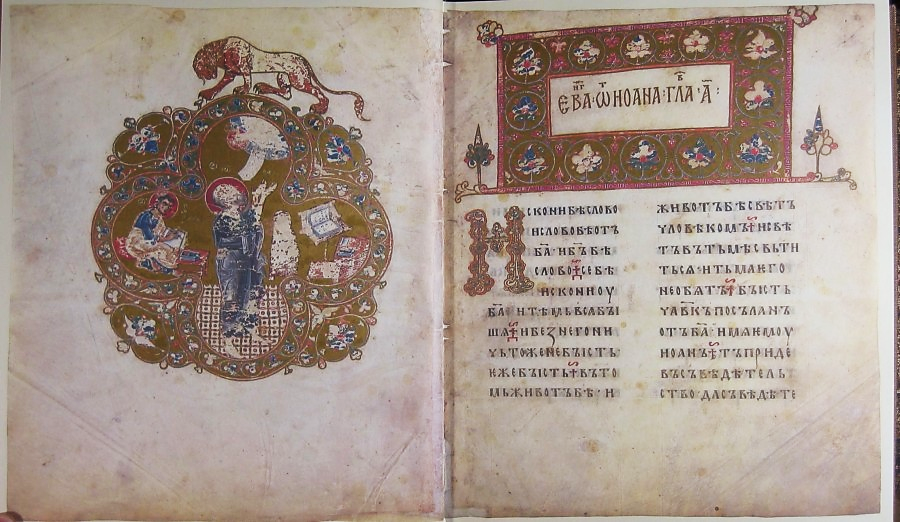 ЕВА·Ѿ ИОАНА·ГЛА·А҃:
ИСКОНИБѢСЛОВО
ИСЛОВОБѢОТЪ
Б҃АИБ҃ЪБѢ
СЛОВОСЕБѢ
ИСКОНИОУ
Б҃АИТѢМЬВСАБЫ
ШАИБЕЗНЕГОНИ
ЧЬТОЖЕНЕБЫСТЬ
ЕЖЕБЫСТЬВЪТО
МЬЖИВОТЪБѢ·И
ЖИВОТЪБѢСВѢТЪ
ЧЛОВѢКОМЪИСВѢ
ТЪВЪТЬМѢСВЬТИ
ТЬСѦИТЬМАѤГО
НЕОБѦТЪБЫСТЬ
ЧЛ҃ВКЪПОСЪЛАНЪ
ОТЪБ҃АИМѦѤМОУ
ИОАНЪТЪПРИДЕ
ВЪСЪВѢДѢТЕЛЬ
СТВО·ДАСЪВѢДѢТЕ